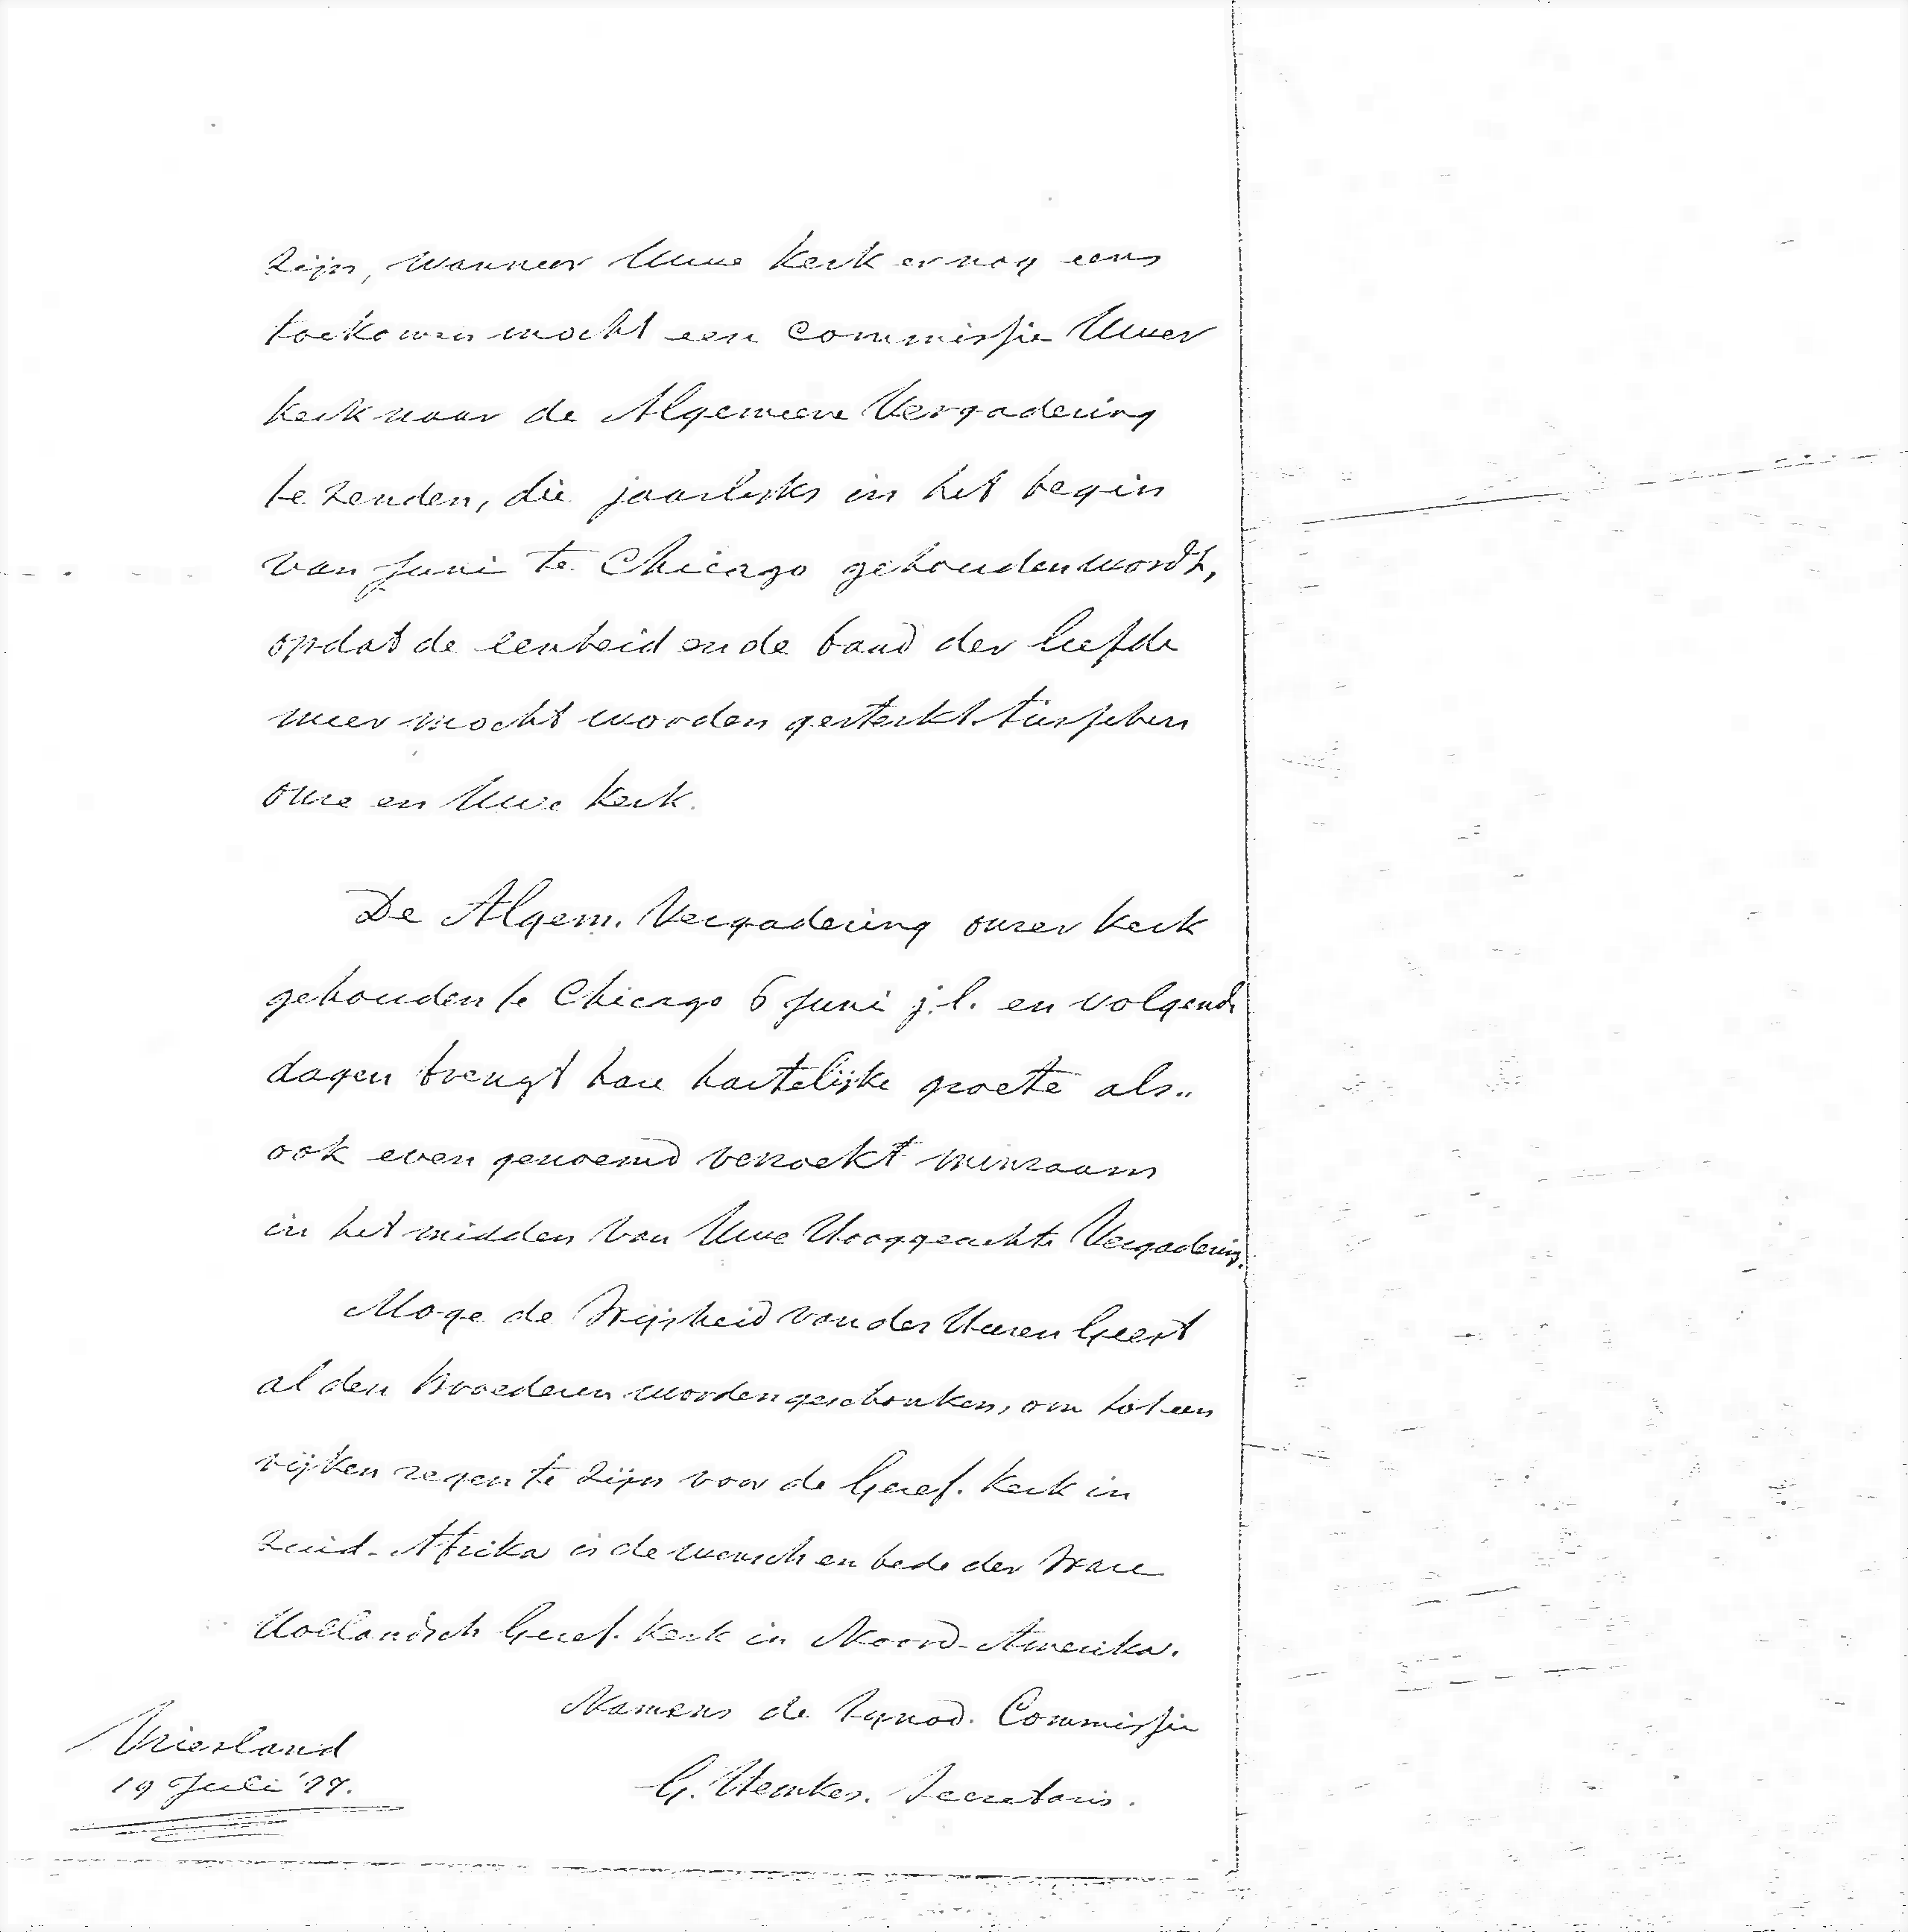 zijn, wanneer Uwe Kerk er nog eens
toekomen mocht een Commissie Uwer
Kerk naar de Algemeene Vergadering
te zenden, die jaarlijks in het begin
van Juni te Chicago gehouden wordt,
opdat de eenheid en de band der liefde
meer mocht worden gesterkt tusschen
onze en Uwe Kerk.
De Algem. Vergadering onzer Kerk
gehouden te Chicago 6 Juni j.l. en volgende
dagen brengt hare hartelijke groete als"
ook even genoemd verzoekt minzaam
in het midden van Uwe Hooggeachte Vergadering.
Moge de Wijsheid van den Heeren Geest
al den Broederen worden geschonken, om tot een
rijken zegen te zijn voor de Geref. Kerk in
Zuid-Afrika is de wensch en bede der Ware
Hollandsch Geref. Kerk in Noord-Amerika.
Namens de Synod. Commissie
G. Hemkes. Secretaris.
Vriesland
19 Juli '77.